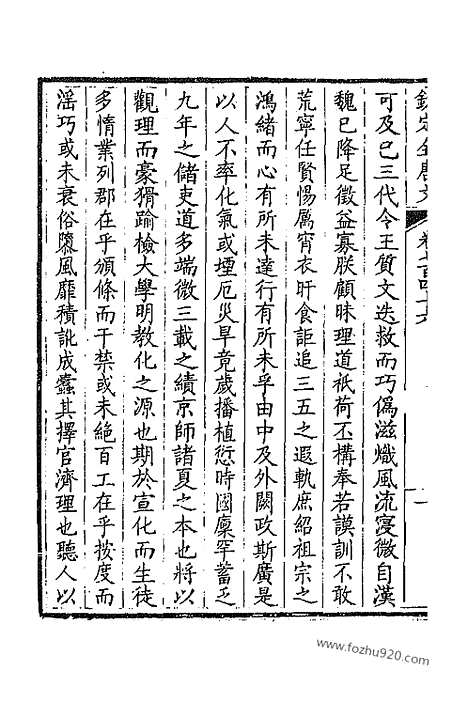 可及已三代令王質文迭救而巧偽滋熾風流寖微自漢
魏已降足徵益寡朕顧昧理道祇荷丕構奉若謨訓不敢
荒寧任賢惕厲宵衣旰食詎追三五之遐軌庶紹祖宗之
鴻緒而心有所未達行有所未孚由中及外闕政斯廣是
以人不率化氣或堙厄災旱竟歲播植愆時國廩罕蓄乏
九年之儲吏道多端微三載之績京師諸夏之本也將以
觀理而豪猾踰檢大學明教化之源也期於宣化而生徒
多惰業列郡在乎頒條而干禁或未絕百工在乎按度而
淫巧或未衰俗隳風靡積訛成蠹其擇官濟理也聽人以
www.fozhu920.com